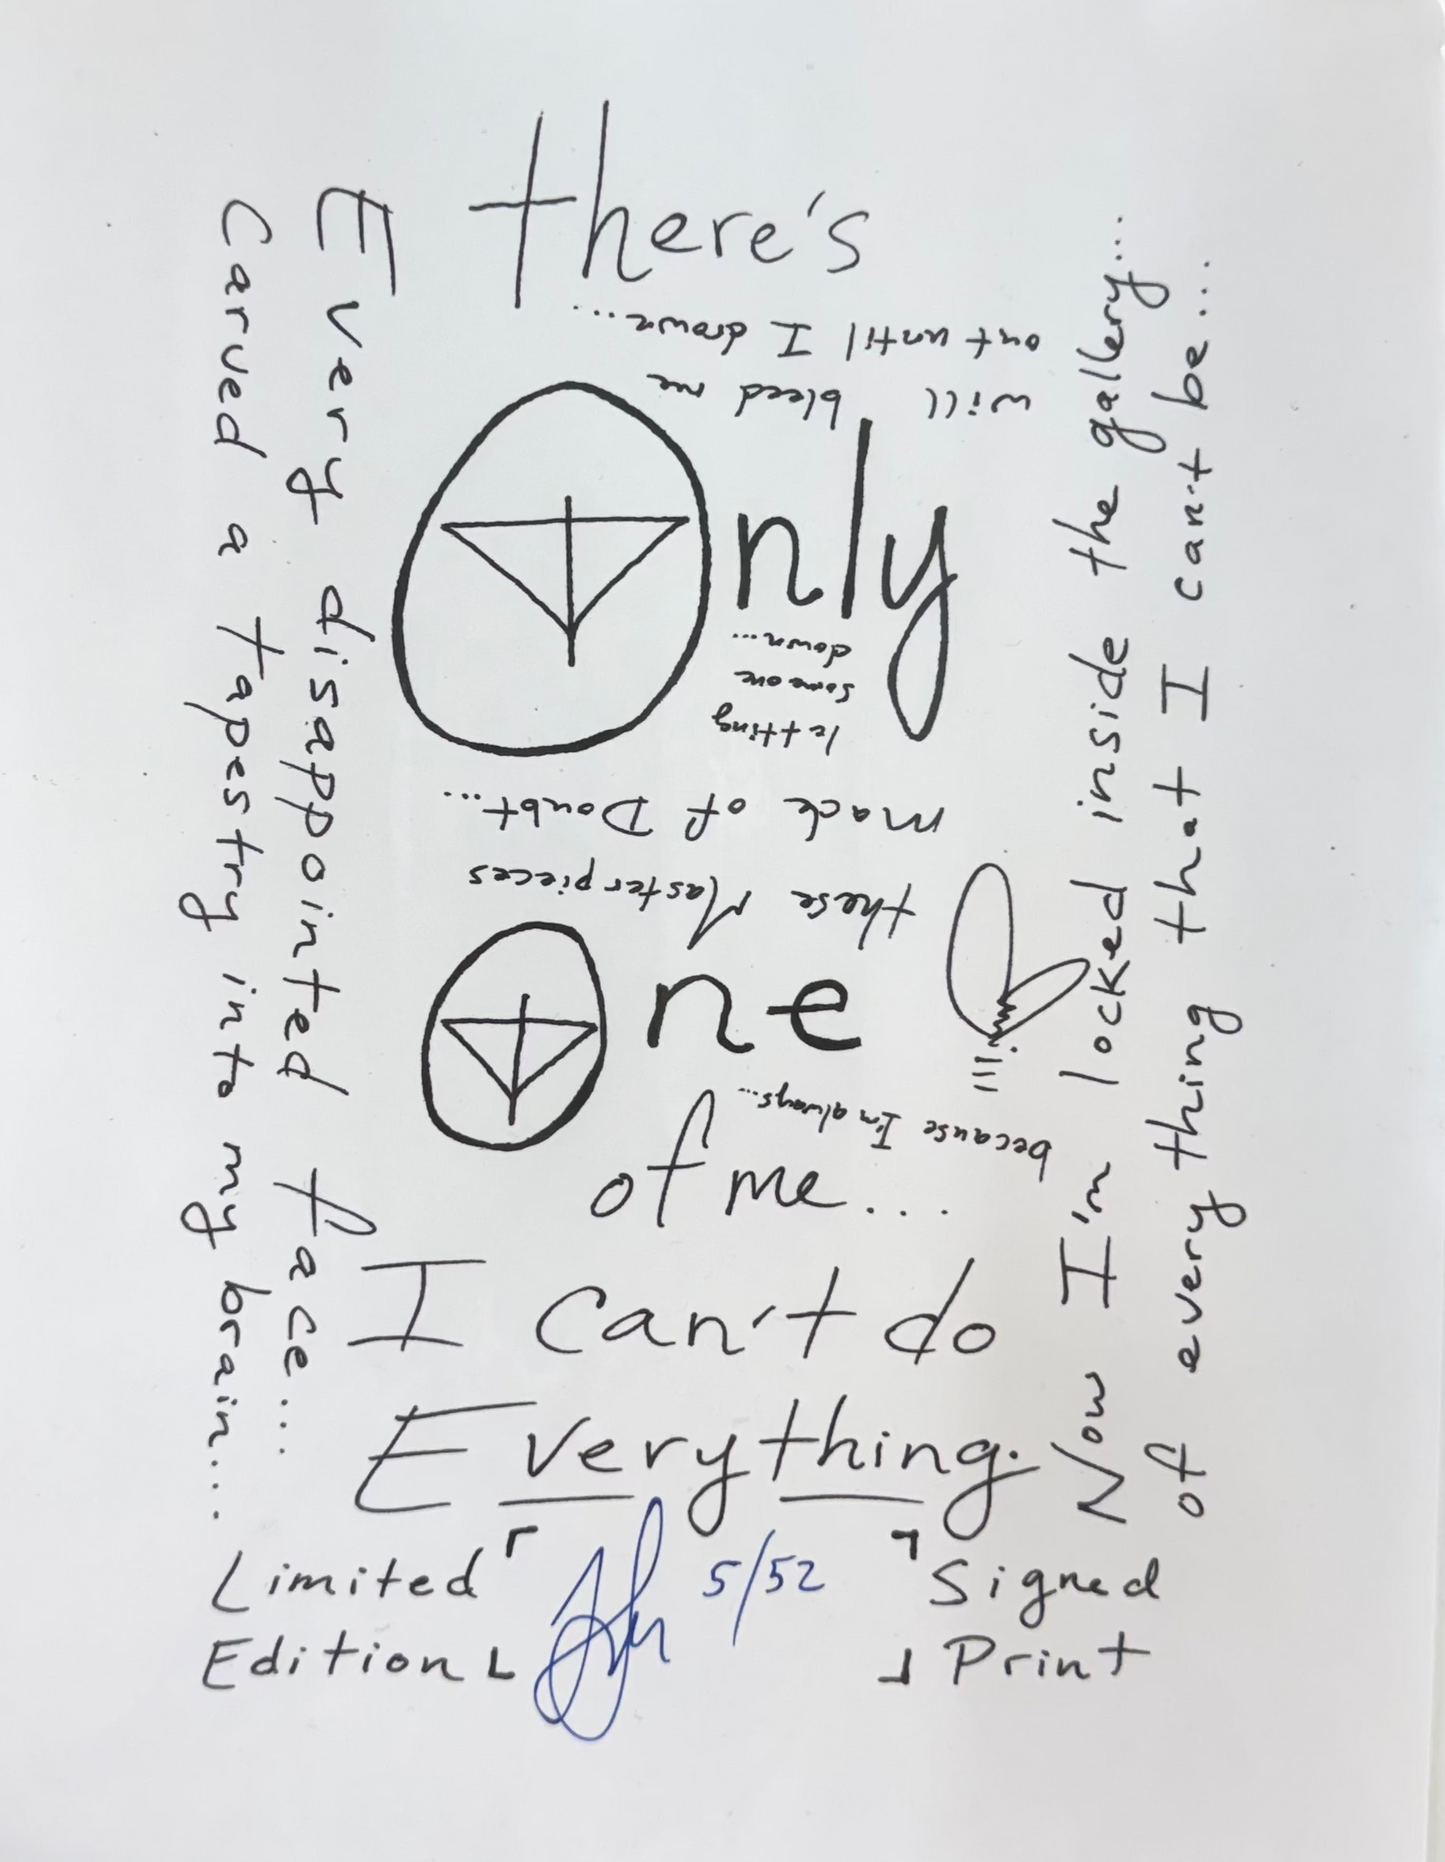 There's
Only
One
of me...
I can't do
Everything.
because I'm always...
letting
someone
down...
Every disappointed face...
Carved a tapestry into my brain...
Now I'm locked inside the gallery...
of every thing that I can't be...
these Masterpieces
made of Doubt...
will bleed me
out until I drown...
Limited
Edition
5/52
Signed
Print